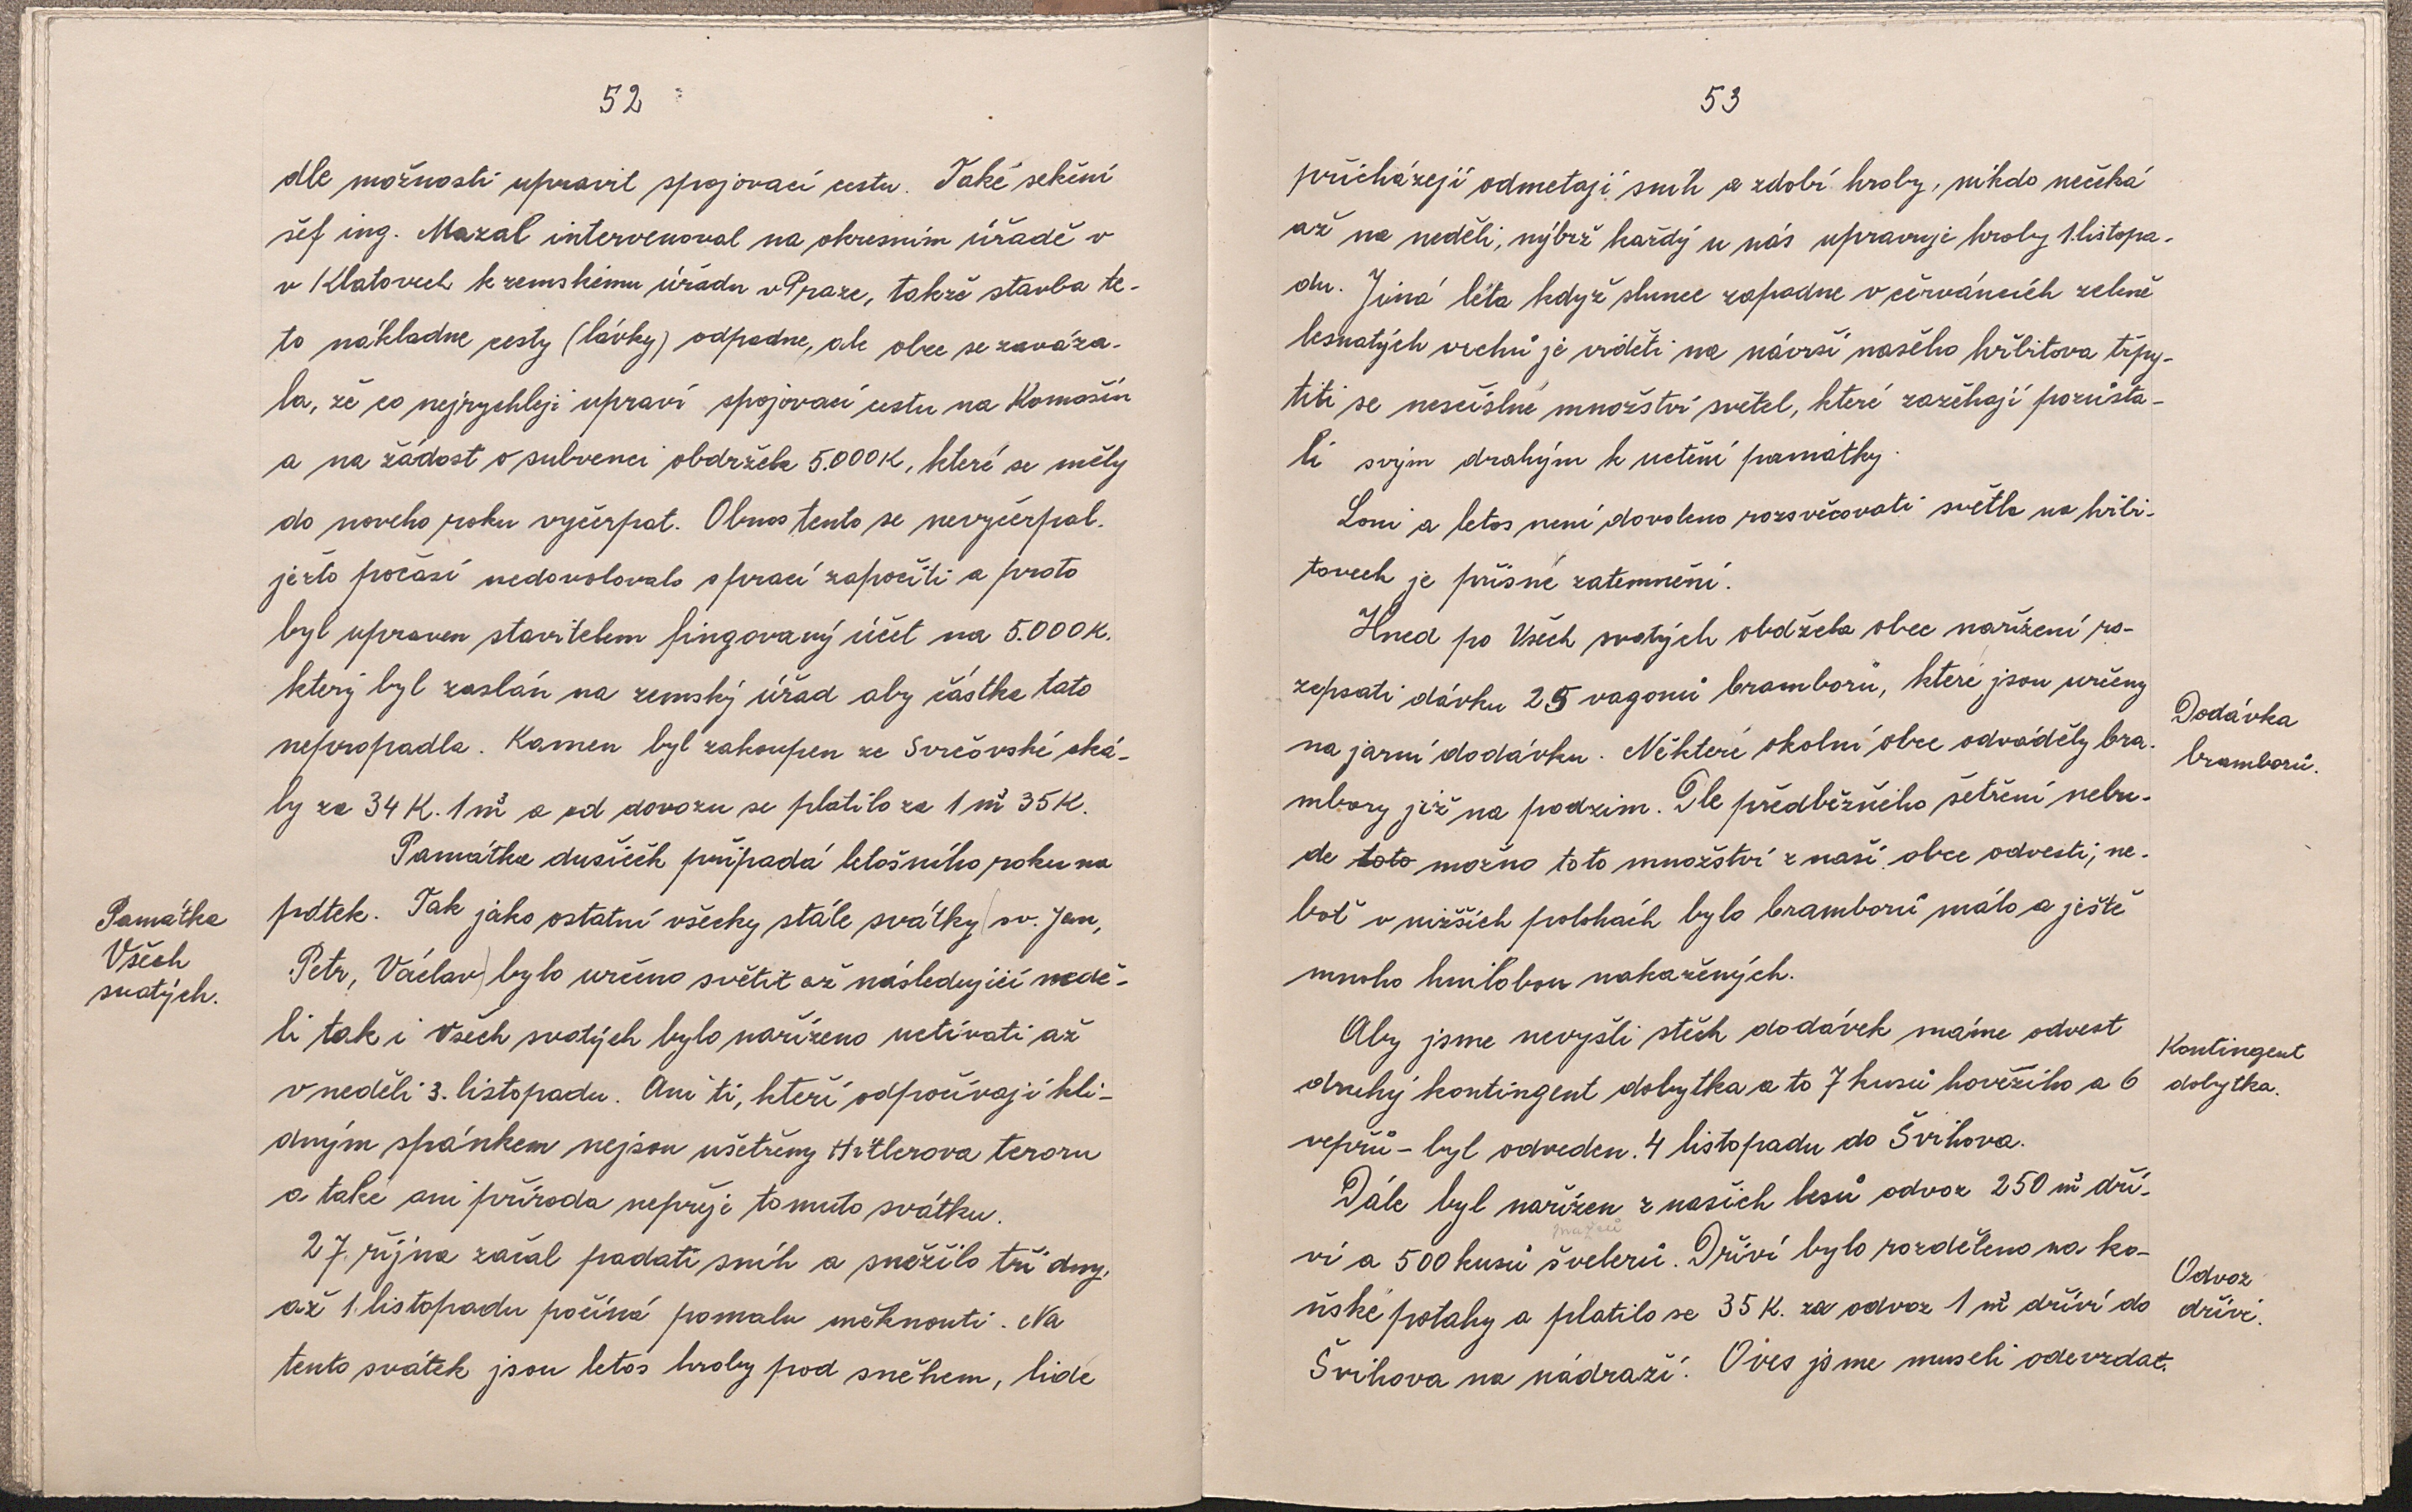 52
dle možnosti upravit spojovací cestu. Také sekční
šéf ing. Mazal intervenoval na okresním úřadě v
v Klatovech k zemskému úřadu v Praze, takže stavba té-
to nákladne cesty (lávky) odpadne, ale obec se zaváza-
la, že co nejrychleji upraví spojovací cestu na Komošín
a na žádost o subvenci obdržela 5.000K, které se měly
do noveho roku vyčerpat. Obnos tento se nevyčerpal.
ježto počasí nedovolovalo s prací započíti a proto
byl upraven stavitelem fingovaný účet na 5.000K.
který byl zaslán na zemský úřad aby částka tato
nepropadla. Kamen byl zakoupen ze Svrčovské ská-
ly za 34 K. 1 m³ a od dovozu se platilo za 1 m³ 35K.
Památka dusiček připadá letošního roku na
Památka
Všech
svatých.
pátek. Tak jako ostatní všecky stále svátky (sv. Jan,
Petr, Václav) bylo určeno světit až následující nedě-
li tak i Všech svatých bylo nařízeno uctívati až
v neděli 3. listopadu. Ani ti, kteří odpočívají kli-
dným spánkem nejsou ušetřeny Hitlerova teroru
a také ani příroda nepřeje tomuto svátku.
27. října začal padati sníh a sněžilo tři dny,
až 1. listopadu počíná pomalu měknouti. Na
tento svátek jsou letos hroby pod sněhem, lidé
53
přicházejí odmetají sníh a zdobí hroby, nikdo nečeká
až na neděli, nýbrž každý u nás upravuje hroby 1. listopa-
du. Jiná léta když slunce zapadne v červáncích zeleně
lesnatých vrchů je viděti na návrší našeho hřbitova třpy-
titi se nesčíslné množství světel, které zažehají pozůsta-
lí svým drahým k uctění památky.
Loni a letos není dovoleno rozsvěcovati světla na hřbi-
tovech je přísné zatemnění.
Hned po Všech svatých obdžela obec nařízení ro-
zepsati dávku 25 vagonů bramborů, které jsou určeny
na jarní dodávku. Některé okolní obce odváděly bra-
Dodávka
bramborů.
mbory již na podzim. Dle předběžného šetření nebu-
de toto možno toto množství z naší obce odvesti, ne-
boť v nižších polohách bylo bramborů málo a ještě
mnoho hnilobou nakažených.
Aby jsme nevyšli stěch dodávek máme odvest
druhý kontingent dobytka a to 7 kusů hovězího a 6
Kontingent
dobytka.
vepřů - byl odveden. 4 listopadu do Švihova.
Dále byl nařízen z našich lesů odvoz 250 m³ dří-
ví a 500 kusů švelerů. Dříví bylo rozděleno na ko-
ňské potahy a platilo se 35 K. za odvoz 1 m³ dříví do
Odvoz
dříví.
Švihova na nádraží. Oves jsme museli odevzdat.